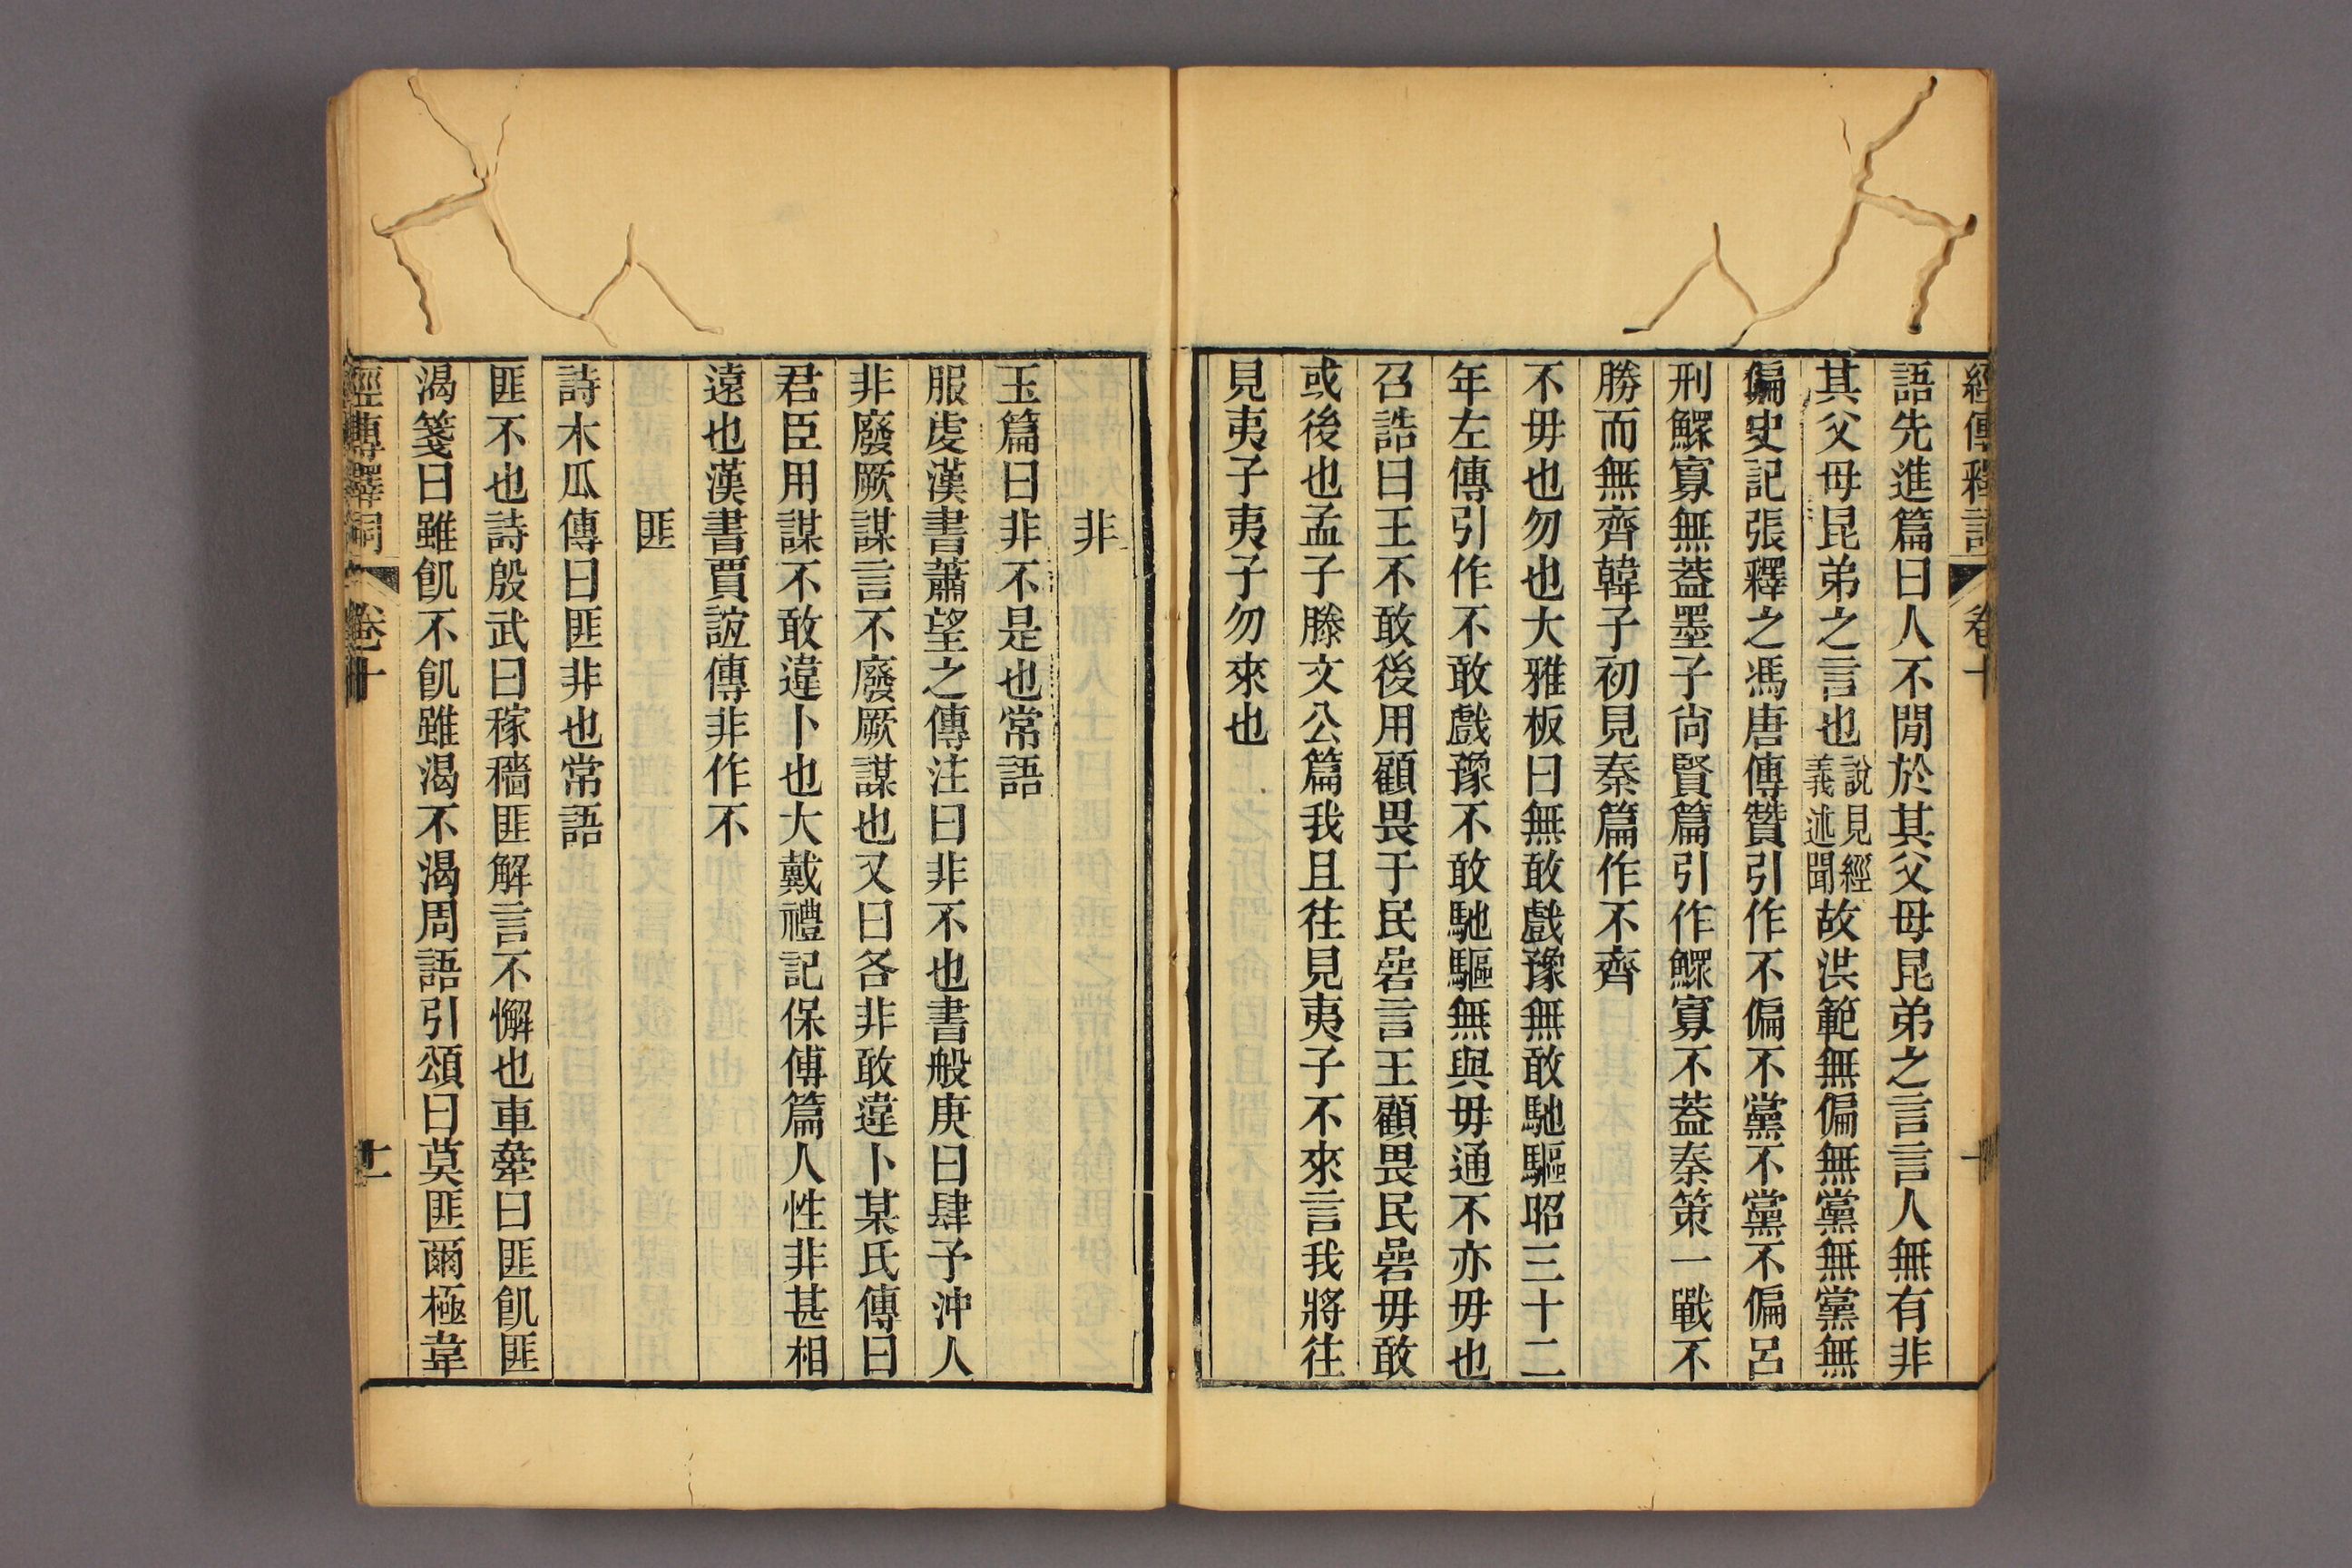 經傳釋詞 卷十
語先進篇曰人不閒於其父母昆弟之言言人無有非
其父母昆弟之言也說見經義述聞故洪範無偏無黨無黨無
偏史記張釋之馮唐傳贊引作不偏不黨不黨不偏呂
刑鰥寡無葢墨子尚賢篇引作鰥寡不葢秦策一戰不
勝而無齊韓子初見秦篇作不齊
不毋也勿也大雅板曰無敢戲豫無敢馳驅昭三十二
年左傳引作不敢戲豫不敢馳驅無與毋通不亦毋也
召誥曰王不敢後用顧畏于民碞言王顧畏民碞毋敢
或後也孟子滕文公篇我且往見夷子不來言我將往
見夷子夷子勿來也
非
玉篇曰非不是也常語
服虔漢書蕭望之傳注曰非不也書般庚曰肆予沖人
非廢厥謀言不廢厥謀也又曰各非敢違卜某氏傳曰
君臣用謀不敢違卜也大戴禮記保傅篇人性非甚相
遠也漢書賈誼傳非作不
匪
詩木瓜傳曰匪非也常語
匪不也詩殷武曰稼穡匪解言不懈也車舝曰匪飢匪
渴箋曰雖飢不飢雖渴不渴周語引頌曰莫匪爾極韋
經傳釋詞 卷十 十一